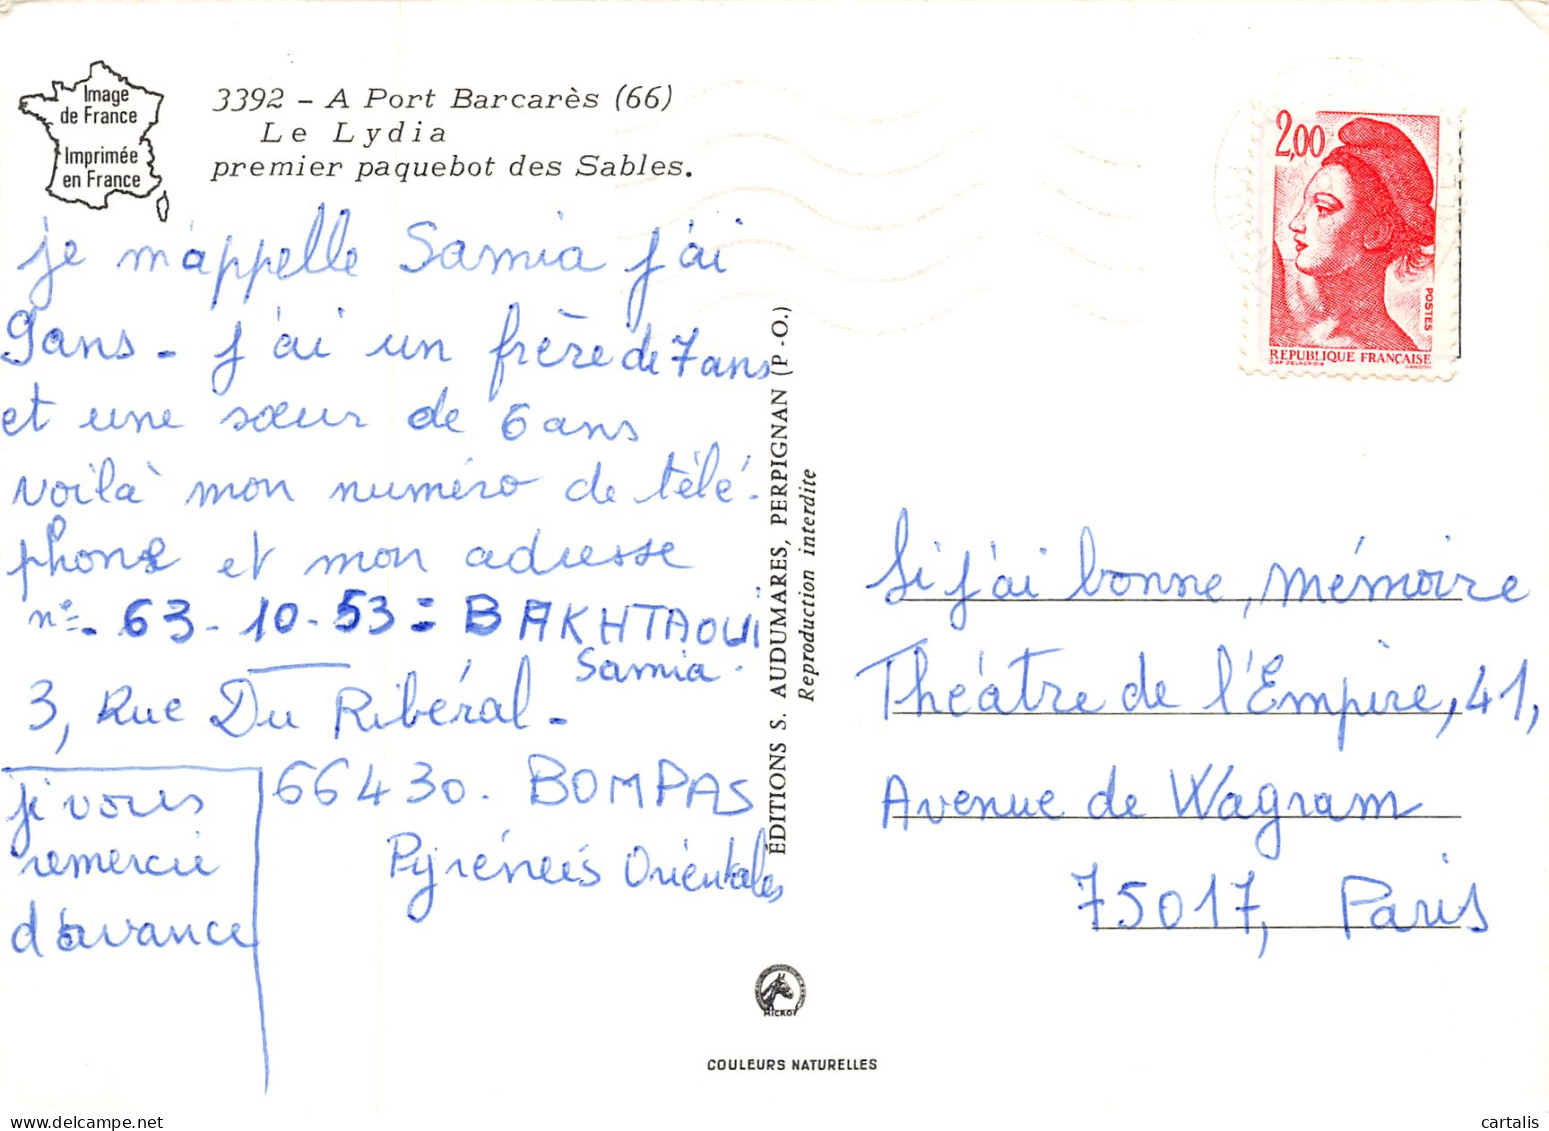 Image
de France
Imprimée
en France
3392 - A Port Barcarès (66)
Le Lydia
premier paquebot des Sables.
je m'appelle Samia j'ai
9ans - j'ai un frère de 7 ans
et une sœur de 6 ans
voilà mon numéro de télé-
phone et mon adresse
n°=. 63-10-53 = BAKHTAOUI
Samia.
3, Rue Du Ribéral -
66430. BOMPAS
Pyrénées Orientales
je vous
remercie
d'avance
ÉDITIONS S. AUDUMARES, PERPIGNAN (P.-O.)
Reproduction interdite
2,00
POSTES
REPUBLIQUE FRANÇAISE
D'AP. DELACROIX
GANDON
Si j'ai bonne, mémoire
Théâtre de l'Empire, 41,
Avenue de Wagram
75017, Paris
COULEURS NATURELLES
cartalis
delcampe.net